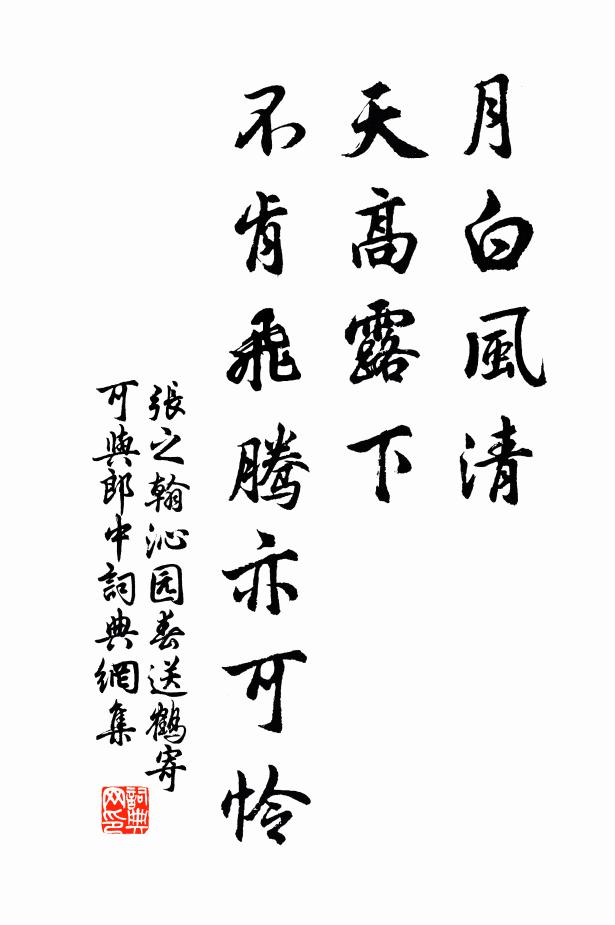 月白風清
天高露下
不肯飛騰亦可怜
張之翰沁园春送鶴寄
可與郎中詞典網集
詞典
网印